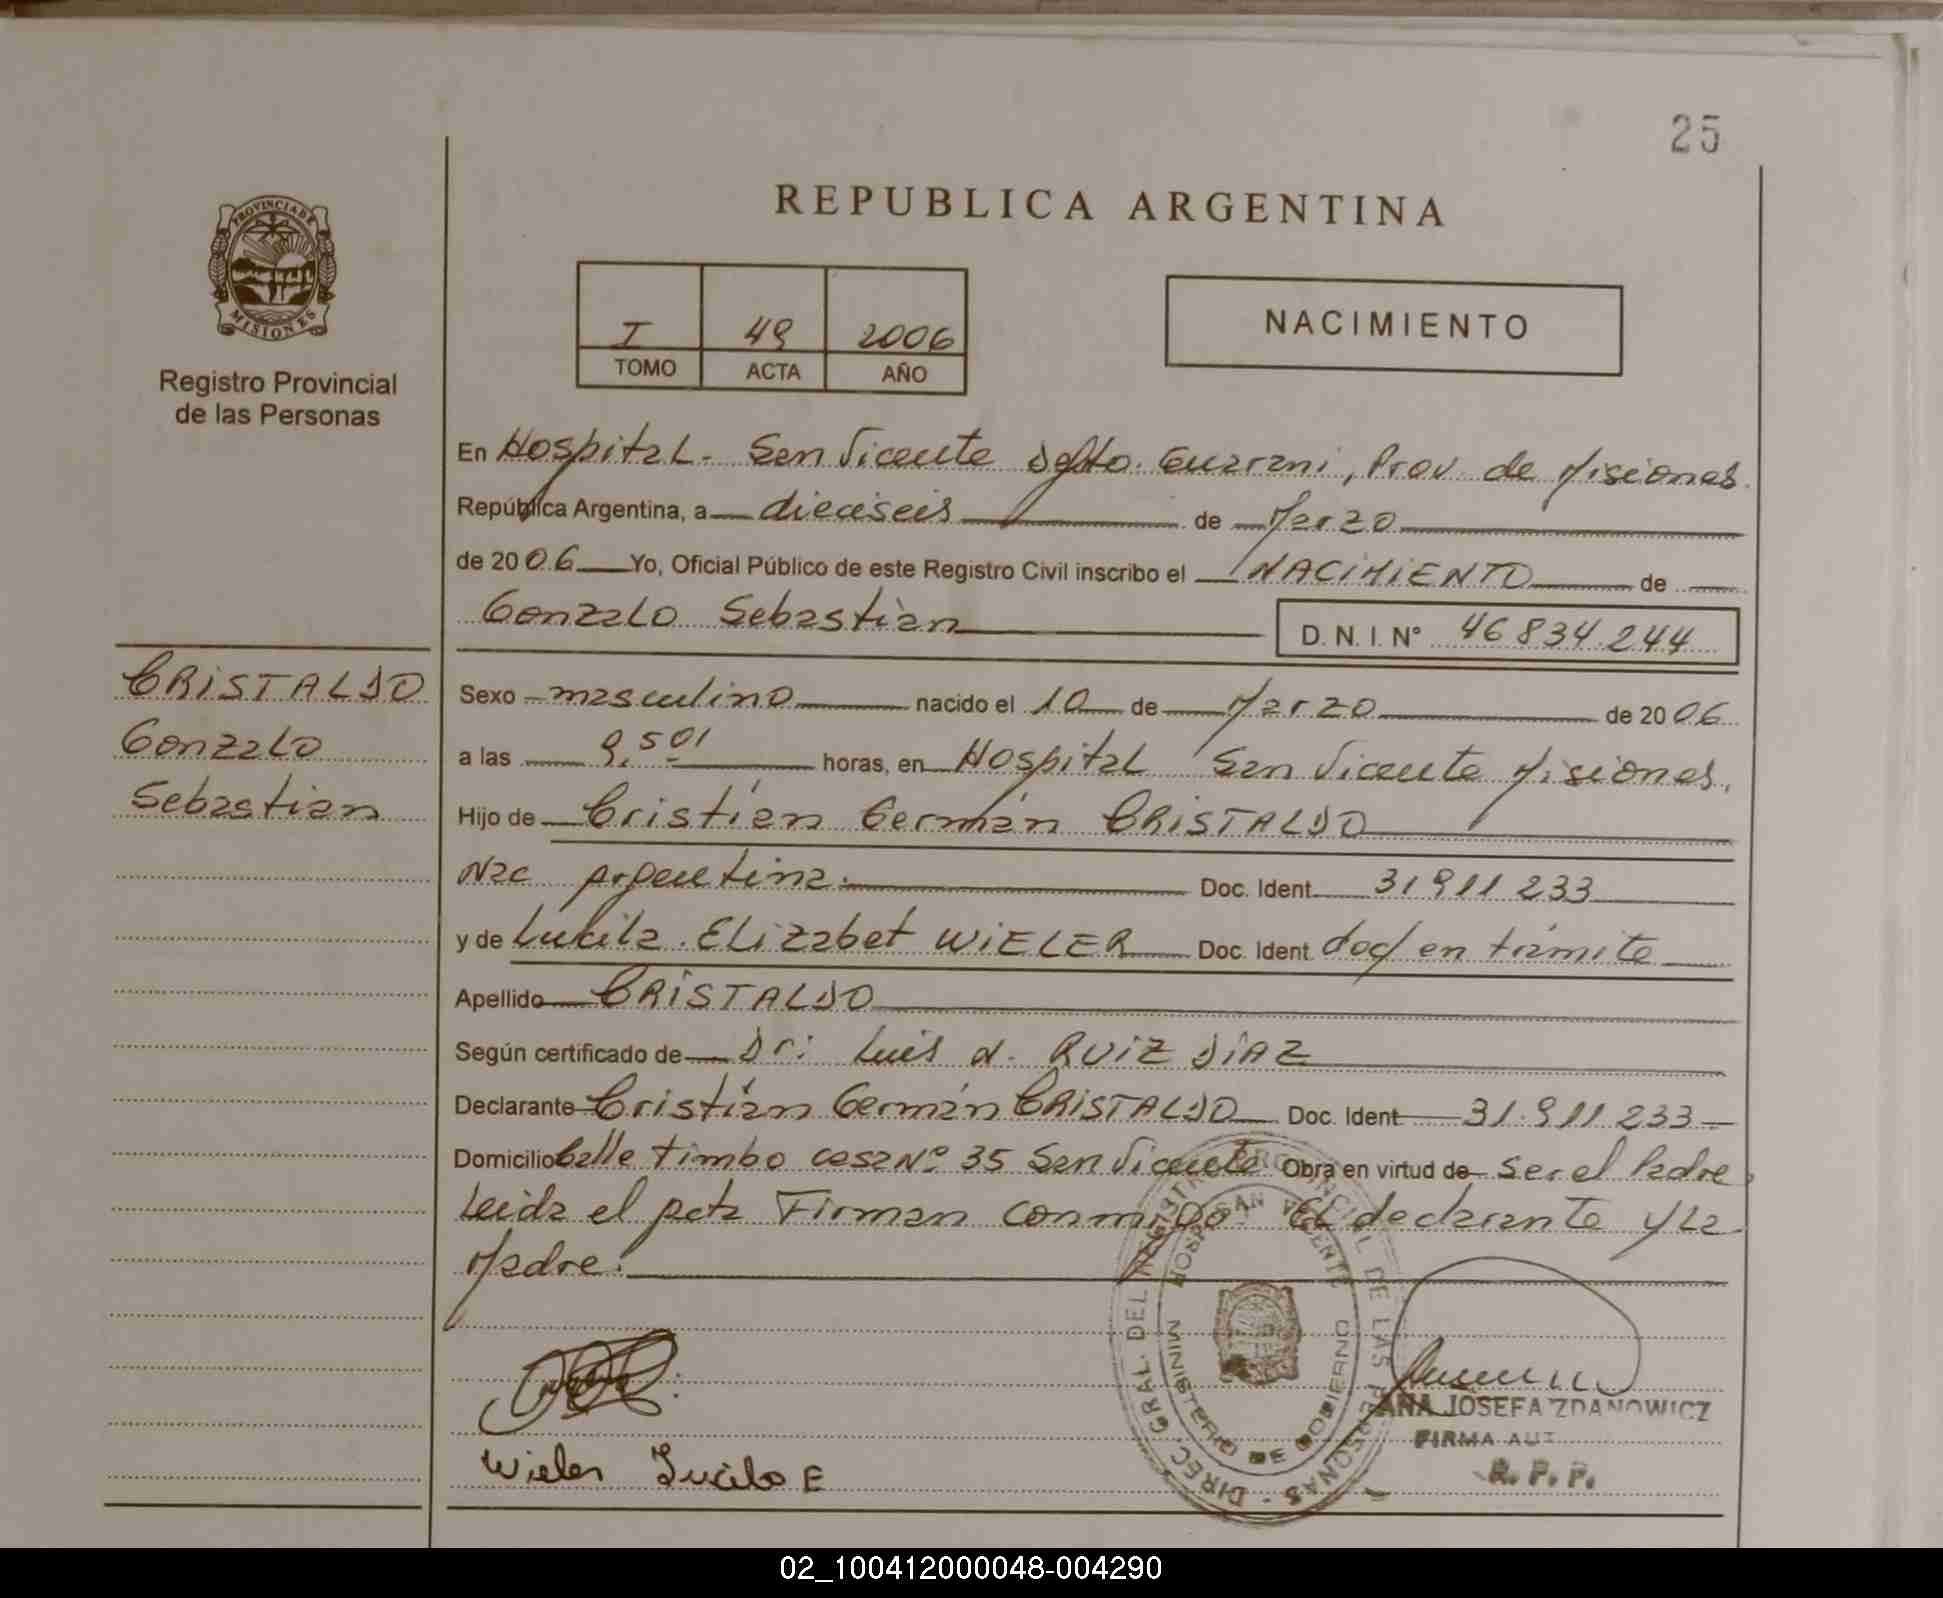 25
REPUBLICA ARGENTINA
PROVINCIA DE
MISIONES
Registro Provincial
de las Personas
I 49 2006
TOMO ACTA AÑO
NACIMIENTO
En Hospital. San Vicente Dpto. Guarani, Prov. de Misiones.
República Argentina, a dieciseis de Marzo
de 2006 Yo, Oficial Público de este Registro Civil inscribo el NACIMIENTO de
Gonzalo Sebastián D. N. I. N° 46834.244
CRISTALDO
Gonzalo
Sebastian
Sexo masculino nacido el 10 de Marzo de 2006
a las 9,50 horas, en Hospital San Vicente Misiones,
Hijo de Cristián Germán CRISTALDO
Nac Argentina. Doc. Ident. 31911233
y de Lucila Elizabet WIELER Doc. Ident. doc/ en trámite
Apellido CRISTALDO
Según certificado de Dr: Luis A. RUIZ DIAZ
Declarante Cristián Germán CRISTALDO Doc. Ident. 31.911233
Domicilio Calle timbo casa Nº 35 San Vicente Obra en virtud de ser el Padre,
Leida el Acta Firman conmigo El declarante y La
Madre.
DIREC. GRAL. DEL REGISTRO PROVINCIAL DE LAS PERSONAS
HOSP. SAN VICENTE
MINISTERIO DE GOBIERNO
Wieler Lucila E
ANA JOSEFA ZDANOWICZ
FIRMA AUT.
R. P. P.
02_100412000048-004290